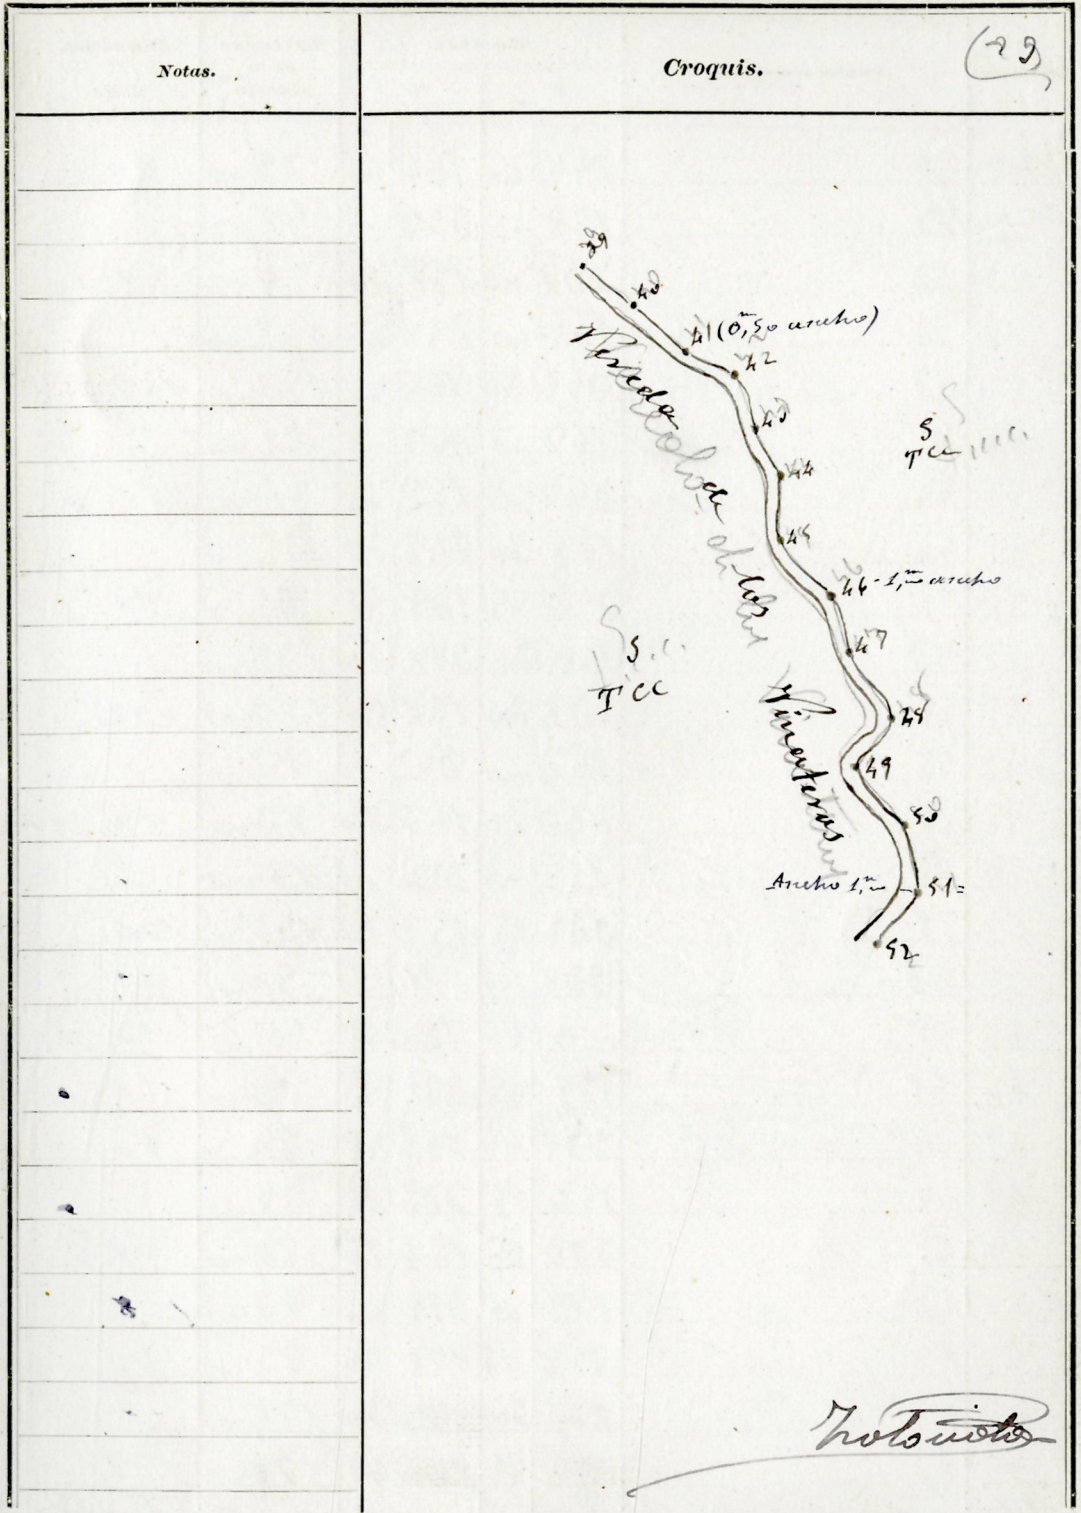 Notas.
Croquis.
(29)
39
40
41 (0,m50 ancho)
42
43
44
45
46 - 1,m00 ancho
47
48
49
50
Ancho 1,m00 - 51 =
52
Vereda de los Vinateros
S
T CC
S
T CC